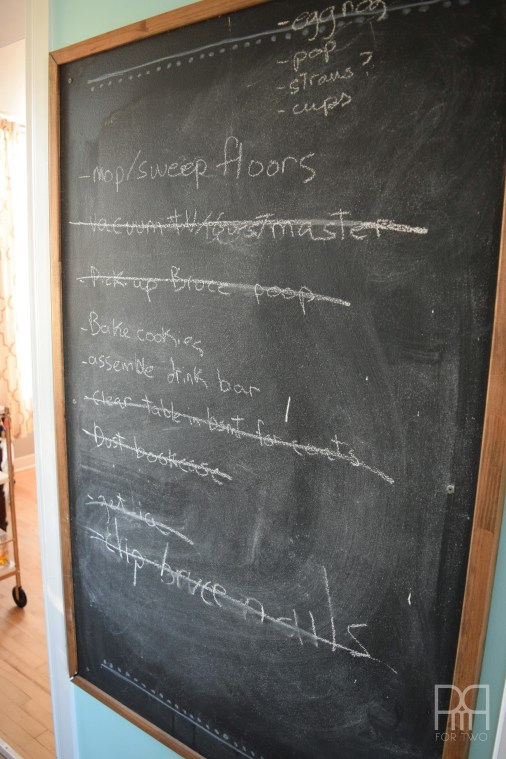 -eggnog
-pop
-straws?
-cups
-mop/sweep floors
-vacuum TV/bsmt master
-Pick up Bruce poop
-Bake cookies
-assemble drink bar
-Clear table in bsmt for coats
-Dust bookcase
-get ice
-clip bruce nails
FOR TWO